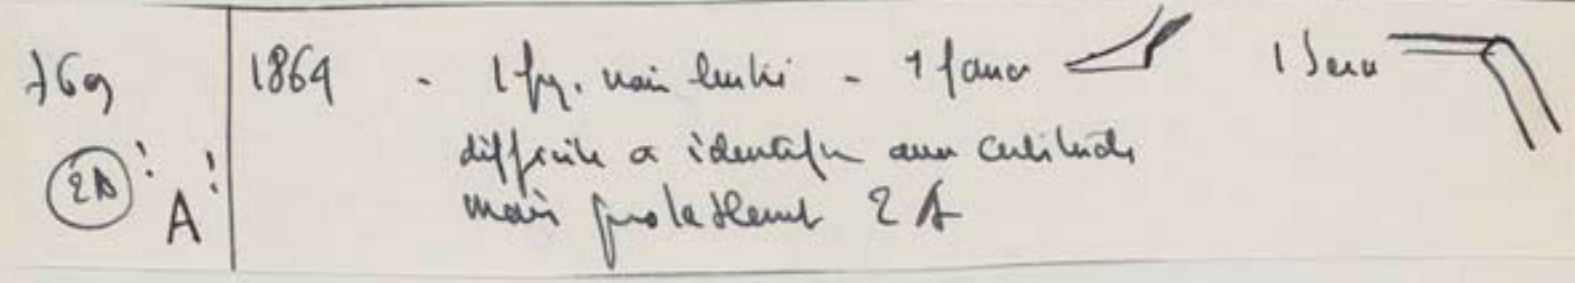 769 1864 - 1 fg. noir lustré - 1 fanc 1
difficile a identifier avec certitude
2A ! A ! mais probablement 2 A